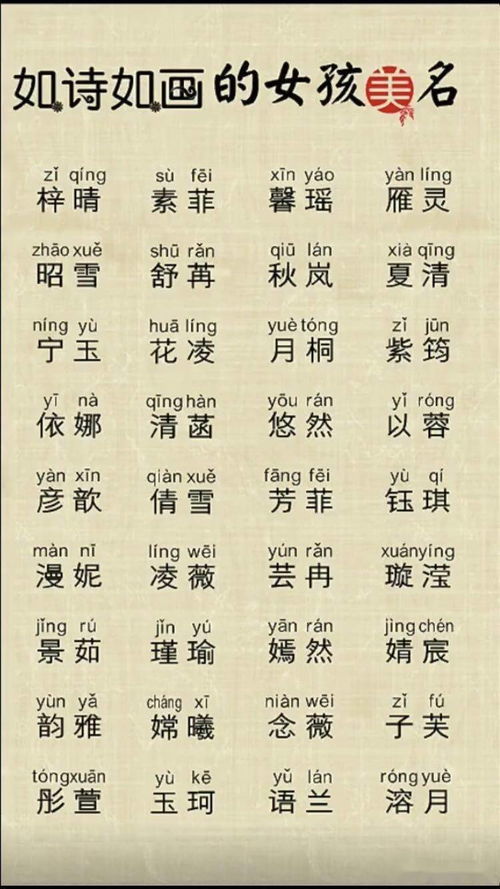 如诗如画的女孩美名
zǐ qíng sù fēi xīn yáo yàn líng
梓晴 素菲 馨瑶 雁灵
zhāo xuě shū rǎn qiū lán xià qīng
昭雪 舒苒 秋岚 夏清
níng yù huā líng yuè tóng zǐ jūn
宁玉 花凌 月桐 紫筠
yī nà qīng hàn yōu rán yǐ róng
依娜 清菡 悠然 以蓉
yàn xīn qiàn xuě fāng fēi yù qí
彦歆 倩雪 芳菲 钰琪
màn nī líng wēi yún rǎn xuán yíng
漫妮 凌薇 芸冉 璇滢
jǐng rú jǐn yú yān rán jìng chén
景茹 瑾瑜 嫣然 婧宸
yùn yǎ cháng xī niàn wēi zǐ fú
韵雅 嫦曦 念薇 子芙
tóng xuān yù kē yǔ lán róng yuè
彤萱 玉珂 语兰 溶月